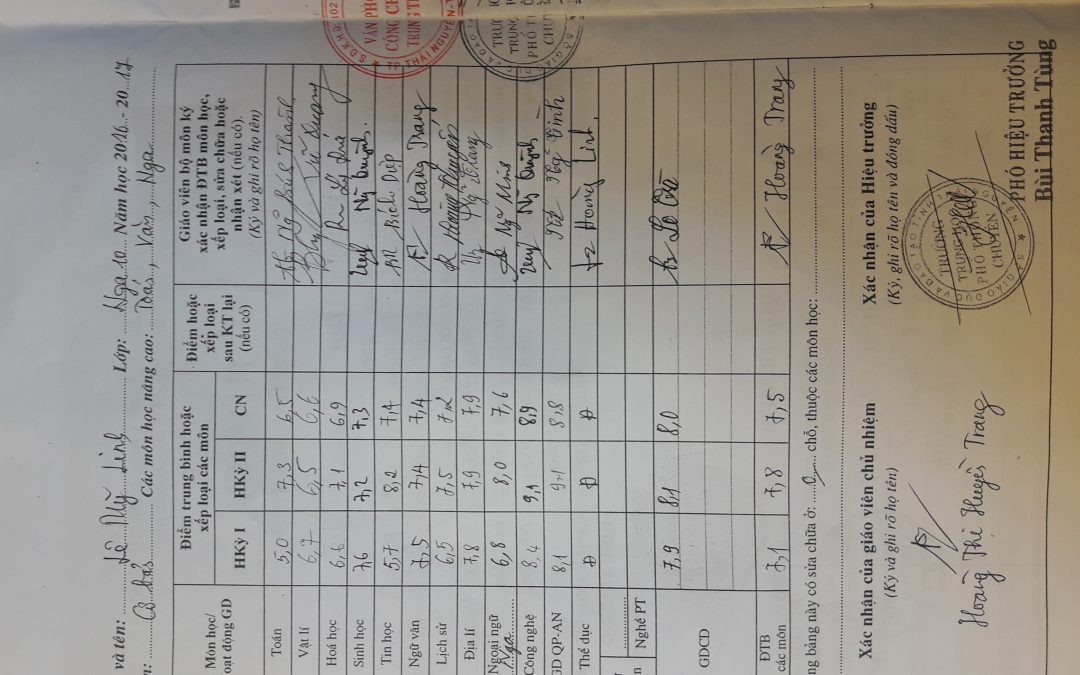 và tên: Lê Mỹ Linh Lớp: Nga 10 Năm học 2016 - 20 17
Các môn học nâng cao: Toán, Văn, Nga
Môn học/
oạt động GD
Điểm trung bình hoặc
xếp loại các môn
HKỳ I HKỳ II CN
Điểm hoặc
xếp loại
sau KT lại
(nếu có)
Giáo viên bộ môn ký
xác nhận ĐTB môn học,
xếp loại, sửa chữa hoặc
nhận xét (nếu có).
(Ký và ghi rõ họ tên)
Toán 5,0 7,3 6,5
Vật lí 6,7 6,5 6,6
Hoá học 6,6 7,1 6,9
Sinh học 7,6 7,2 7,3 Quỳnh
Tin học 5,7 8,2 7,4 Bích Diệp
Ngữ văn 7,5 7,4 7,4 Hoàng Trang
Lịch sử 6,5 7,5 7,2
Địa lí 7,8 7,9 7,9
Ngoại ngữ
Nga 6,8 8,0 7,6
Công nghệ 8,4 9,1 8,9 Quỳnh
GD QP-AN 8,1 9,1 8,8
Thể dục Đ Đ Đ Hoàng Linh
Nghề PT
GDCD 7,9 8,1 8,0
ĐTB
các môn 7,1 7,8 7,5 Hoàng Trang
ng bảng này có sửa chữa ở: 0 chỗ, thuộc các môn học:
Xác nhận của giáo viên chủ nhiệm
(Ký và ghi rõ họ tên)
Hoàng Thị Huyền Trang
Xác nhận của Hiệu trưởng
(Ký, ghi rõ họ tên và đóng dấu)
TRƯỜNG
TRUNG
PHỔ TH
CHUYÊN
PHÓ HIỆU TRƯỞNG
Bùi Thanh Tùng
VĂN PHÒ
CÔNG CH
TRUNG T
TP. THÁI NGUYÊN
TRƯỜ
TRUNG
PHỔ T
CHUY